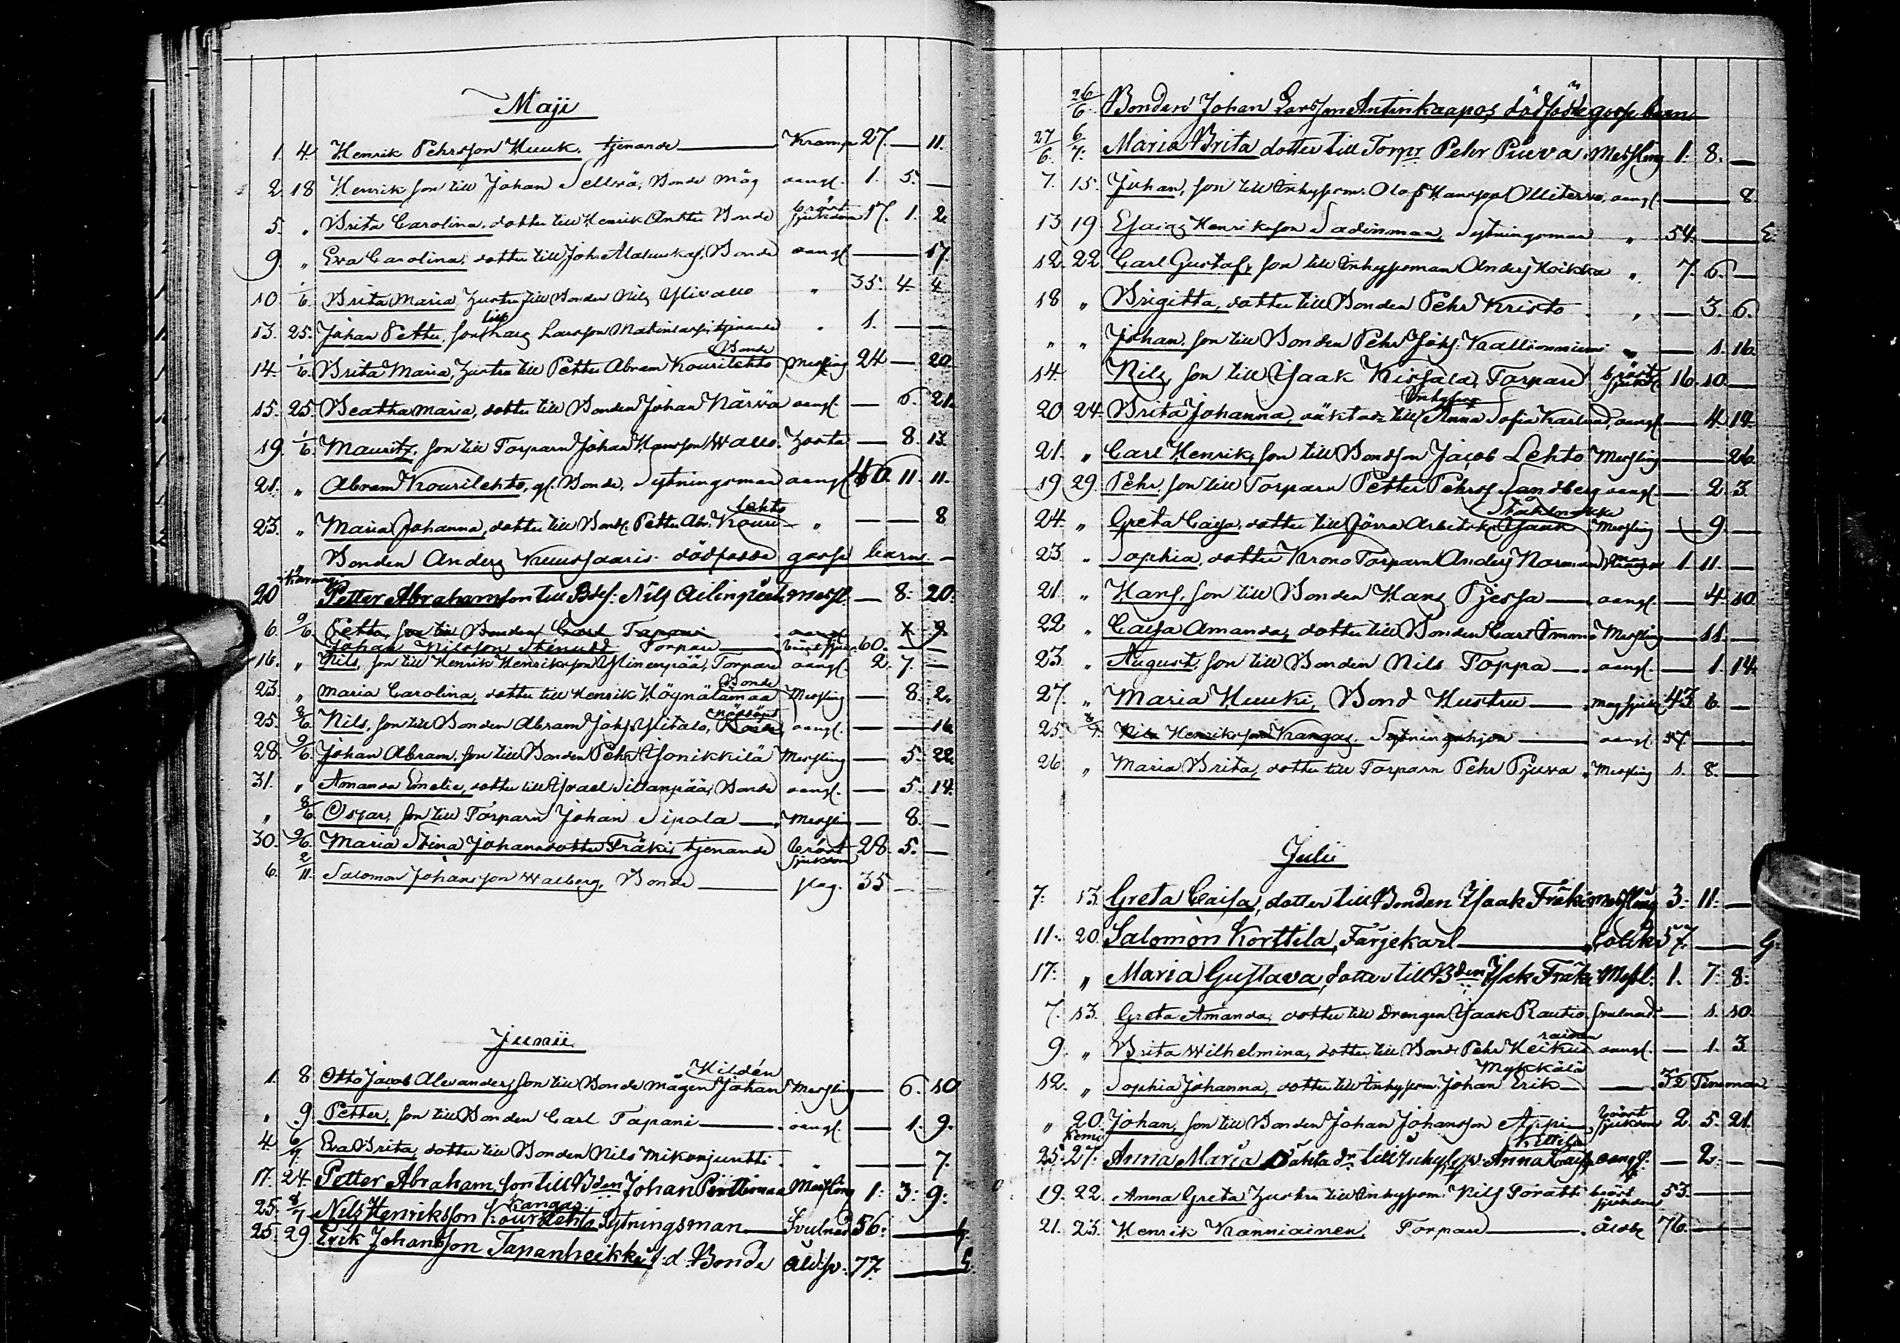 Maji
1. 4. Henrik Pehrsson Kuuk. tjenande Kramp 27. — 11.
2. 18 Henrik son till Johan Sellvä, Bonde måg aangf. 1. 5. —
5. " Brita Carolina, dotter till Henrik Anttu Bonde bröst sjukdom 17. 1. 2.
9. " Eva Carolina, dotter till Joh. Bonde aangf. — — 17.
10 1/6. Brita Maria, hustru till Bonden Nils Ylivallo " 35. 4. 4.
13. 25. Johan Petter, son till Larsson tjenande " 1. — —
14. 1/6. Brita Maria, hustru till Petter Abram Kourilehto Bonde Messling 24 — 20
15. 25. Beatha Maria, dotter till Bonden Johan Närvä aangf. — 6. 21.
19. 1/6. Mauritz, son till Torparn Johan Hansson Wallo. — 8. 13.
21. " Abram Kourilehto, gf. Bonde, Sytningsman aangf. 40. 11. 11.
23. " Maria Johanna, dotter till Bond. Petter Abr. Kouri- lehto " — — 8
Bonden Anders Kuussaaris dödfödde gosse barn —
20 Petter Abraham son till Bdsf. Nils messl. — 8. 20.
6. 9/6 Petter, son till Bonden Carl Tapani aangf. 1. 9.
Johan Nilsson Torpare 60. — —
16. " Nils, son till Henrik Henriksson Ylinenpää, Torpare aangf. 2. 7. —
23. " Maria Carolina, dotter till Henrik Höynälänmaa Bonde Messling — 8. 2.
25. 8/6. Nils, son till Bonden Abram Johs. Yritalo, aangf. — — 16.
28. 9/6. Johan Abram, son till Bonden Pehr Junikkilä Messling — 5. 22.
31. " Amanda Emelie, dotter till Israel Siltanpää, Bonde aangf. — 5. 14.
" 8/6. Oscar, son till Torparn Johan Sipola Messling — 8. —
30. 9/6. Maria Stina Johansdotter Fräki, tjenande bröst sjukdom 28. 5. —
6. 2/11. Salomon Johansson Walberg, Bonde slag. 35 —
Junii
1. 8. Otto Jacob Alexander, son till Bonde mågen Johan Hildén Messling — 6. 10
" 9. Petter, son till Bonden Carl Tapani aangf. — 1. 9.
4. 6/7 Eva Brita, dotter till Bonden Nils Mikonjuntti " — — 7.
17. 24. Petter Abraham son till Bden Johan Penttinmaa Messling 1. 3. 9.
25. 8/7 Nils Henriksson Kourilehto Kangas Sytningsman Svulnad 56. —
25. 29. Erik Johansson Tapanheikki f.d. Bonde åld.sv. 77. —
26/6. Bonden Johan Larsson Antinkaapos dödfödde gosse barn
27/6. 6/7. Maria Brita dotter till Torpr Pehr Piuva Messling 1. 8. —
7. 15. Johan, son till Inhysesm. Olof Hansson Ollitervo, aangf. — 8.
13 19 Esaias Henriksson Sadinmaa, Sytningsman " 54. —
12. 22. Carl Gustaf, son till Inhysesman Anders Hoikka " 7. 6. —
18 " Brigitta, dotter till Bonden Pehr Kristo " — 3. 6.
" " Johan, son till Bonden Pehr Johs. Kallionniemi " — 1. 16.
14. Nils, son till Isaak Kissala, Torpare bröst sjukd. 16. 10. —
20. 24. Brita Johanna, oäkta dr till Inhyses Anna Sofia Karlund, aangf. — 4. 14.
21. " Carl Henrik, son till Bondson Jacob Lehto Messling — — 26.
19. 29. Pehr, son till Torparn Petter Pehrss. Sandberg aangf. — 2. 3.
24. " Greta Caisa, dotter till Isaak Messling — 9. —
23. " Sophia, dotter Krono Torparn Anders Norman 1. 11. —
21. " Hans, son till Bonden Hans Pjessa aangf. — 4. 10.
22. " Caisa Amanda, dotter till Bonden Carl Ommo Messling — 11. —
23. " August, son till Bonden Nils Toppa aangf. — 1. 14.
27. " Maria Kuuki, Bond Hustru magsjukd. 43. 6. —
25. 8/7. Nils Henriksson Kangas, Sytningshjon aangf. 57. —
26. " Maria Brita, dotter till Torparn Pehr Pjuva Messling 1. 8. —
Julii
7. 13. Greta Caisa, dotter till Bonden Isaak Fräki Messling 3. 11. —
11. 20. Salomon Korttila, Färjekarl Colik 57. —
17. " Maria Gustava, dotter till Bden Isak Fräki Messl. 1. 7. 8.
7. 13. Greta Amanda, dotter till Drengen Isaak Rautio. Svulnad — 1. 10.
9. " Brita Wilhelmina, dotter till Bond. Pehr Heiku- rainen aangf. — 1. 3.
12. " Sophia Johanna, dotter till Inhysesm. Johan Erik Mykkälä — 3/4 Timmar
" 20. Johan, son till Bonden Johan Johansson Appi bröst sjukdom 2. 5. 21.
Kemi 25. 27. Anna Maria Oäkta dr till Inhyses p. Anna Caisa Kittilä aangf. — 2. —
19. 22. Anna Greta hustru till Inhysesm. Nils Poratti bröst sjukdom 53. —
21. 23. Henrik Kanniainen, Torpare ålder 76. —